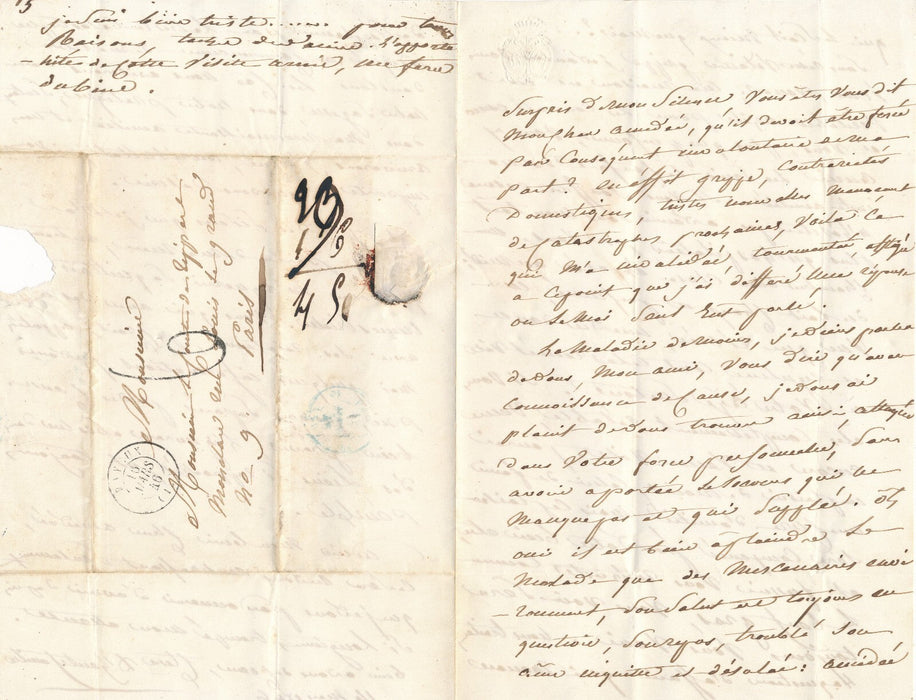 je suis bien triste ...... pour
Raisons,
-nité de cette visite amie, me fera
du bien.
Monsieur
Monsieur
rue Louis le grand
No 9 Paris
MARS
46
Surpris de mon Silence, Vous êtes Vous dit
Mon cher amédée, qu'il devoit être forcé
par Conséquent involontaire de ma
part? en effet grippe, contrariétés
Domestiques, tristes nouvelles Menaçant
de Catastrophes prochaines, Voila Ce
qui M'a tourmentée
a Ce point que j'ai différé Une réponse
ou le Moi Seul Eut parlé.
La Maladie de moins, je viens parler
de Vous, Mon ami, Vous dire qu'avec
Connoissance de Cause, je Vous ai
plaint de Vous trouver ainsi
dans Votre force personnelle, Sans
avoir a portée le Secours qui ne
Manque pas et qui Supplée. Oh
oui il est bien a plaindre le
Malade que des Mercenaires envi
-ronnent, Son Salut est toujours en
question, Son repos, troublé Son
âme inquiette et désolée: amédée